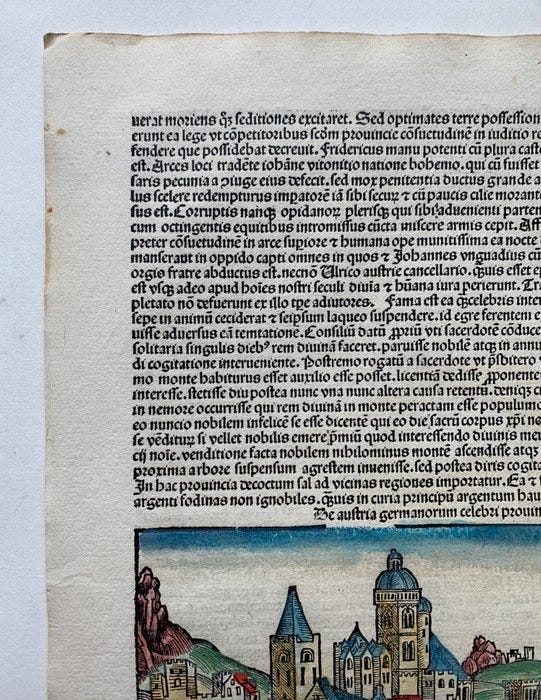 uerat moriens qȝ seditiones excitaret. Sed optimates terre possession
erunt ea lege vt cōpetitoribus scḋm prouincie cōsuetudinē in iuditio re
fendere que possidebat decreuit. Fridericus manu potenti cū plura caste
est. Arces loci tradēte iohāne vitonitio natione bohemo. qui cū fuisset
saris pecunia a ꝯiuge eius defecit. sed mox penitentia ductus grande a
lus scelere redempturus impatorē iā sibi secuꝝ ⁊ cū paucis cilie morante
sus est. Corruptis nanqȝ opidanoꝝ plerisqȝ qui sibi aduenienti parten
cum octingentis equitibus intromissus cūcta miscere armis cepit. Aff
preter cōsuetudinē in arce supiore ⁊ humana ope munitissima ea nocte
manserant in oppido capti omnes in quos ⁊ Johannes vnguadius cū
orgis fratre abductus est. necnō Ulrico austrie cancellario. qȝuis esset ep
est vsqȝ adeo apud hoīes nostri seculi diuīa ⁊ hūana iura perierunt. Tra
pletato nō defuerunt ex illo tꝑe adiutores. Fama est ea qȝcelebris inter
sepe in animū ceciderat ⁊ seipsum laqueo suspendere. id egre ferentem e
uisse aduersus eā temtatione. Consiliū datū ꝓriū vti sacerdotē cōduce
solitaria singulis diebꝰ rem diuinā faceret. paruisse nobilē atqȝ in annu
di cogitatione interueniente. Postremo rogatū a sacerdote vt pṡbitero v
mo monte habiturus esset auxilio esse posset. licentiā dedisse ꝓponente
interesse. stetisse diu postea nunc vna nunc altera causa retentū. deniqȝ ci
in nemore occurrisse qui rem diuinā in monte peractam esse populumq
eo nuncio nobilem infelicē se esse dicentē qui eo die sacrū corpus xp̄i ne
se vēdituꝝ si vellet nobilis emere p̄miū quod interessendo diuinis mer
cij noīe. venditione facta nobilem nihilominus montē ascendisse atqȝ
proxima arbore suspensum agrestem inuenisse. sed postea diris cogita
In hac prouincia decoctum sal ad vicinas regiones importatur. Ea ⁊
argenti fodinas non ignobiles. qȝuis in curia principū argentum hau
De austria germanorum celebri prouin